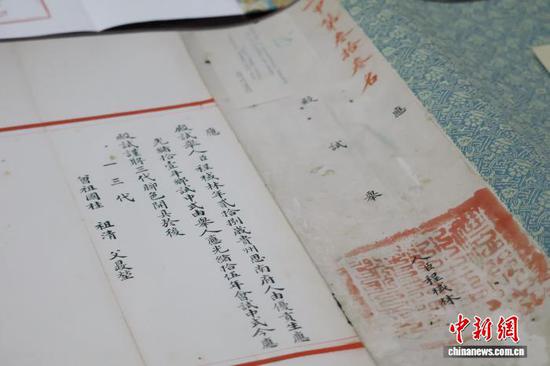 第叁拾叁名
應
殿試舉
人臣程棫林
應
殿試舉人臣程棫林年貳拾捌歲貴州思南府人由優貢生應
光緒拾壹年鄉試中式由舉人應光緒拾伍年會試中式今應
殿試謹將三代腳色開具於後
一三代
曾祖國柱 祖清 父
中新網
www.chinanews.com
chinanews.com